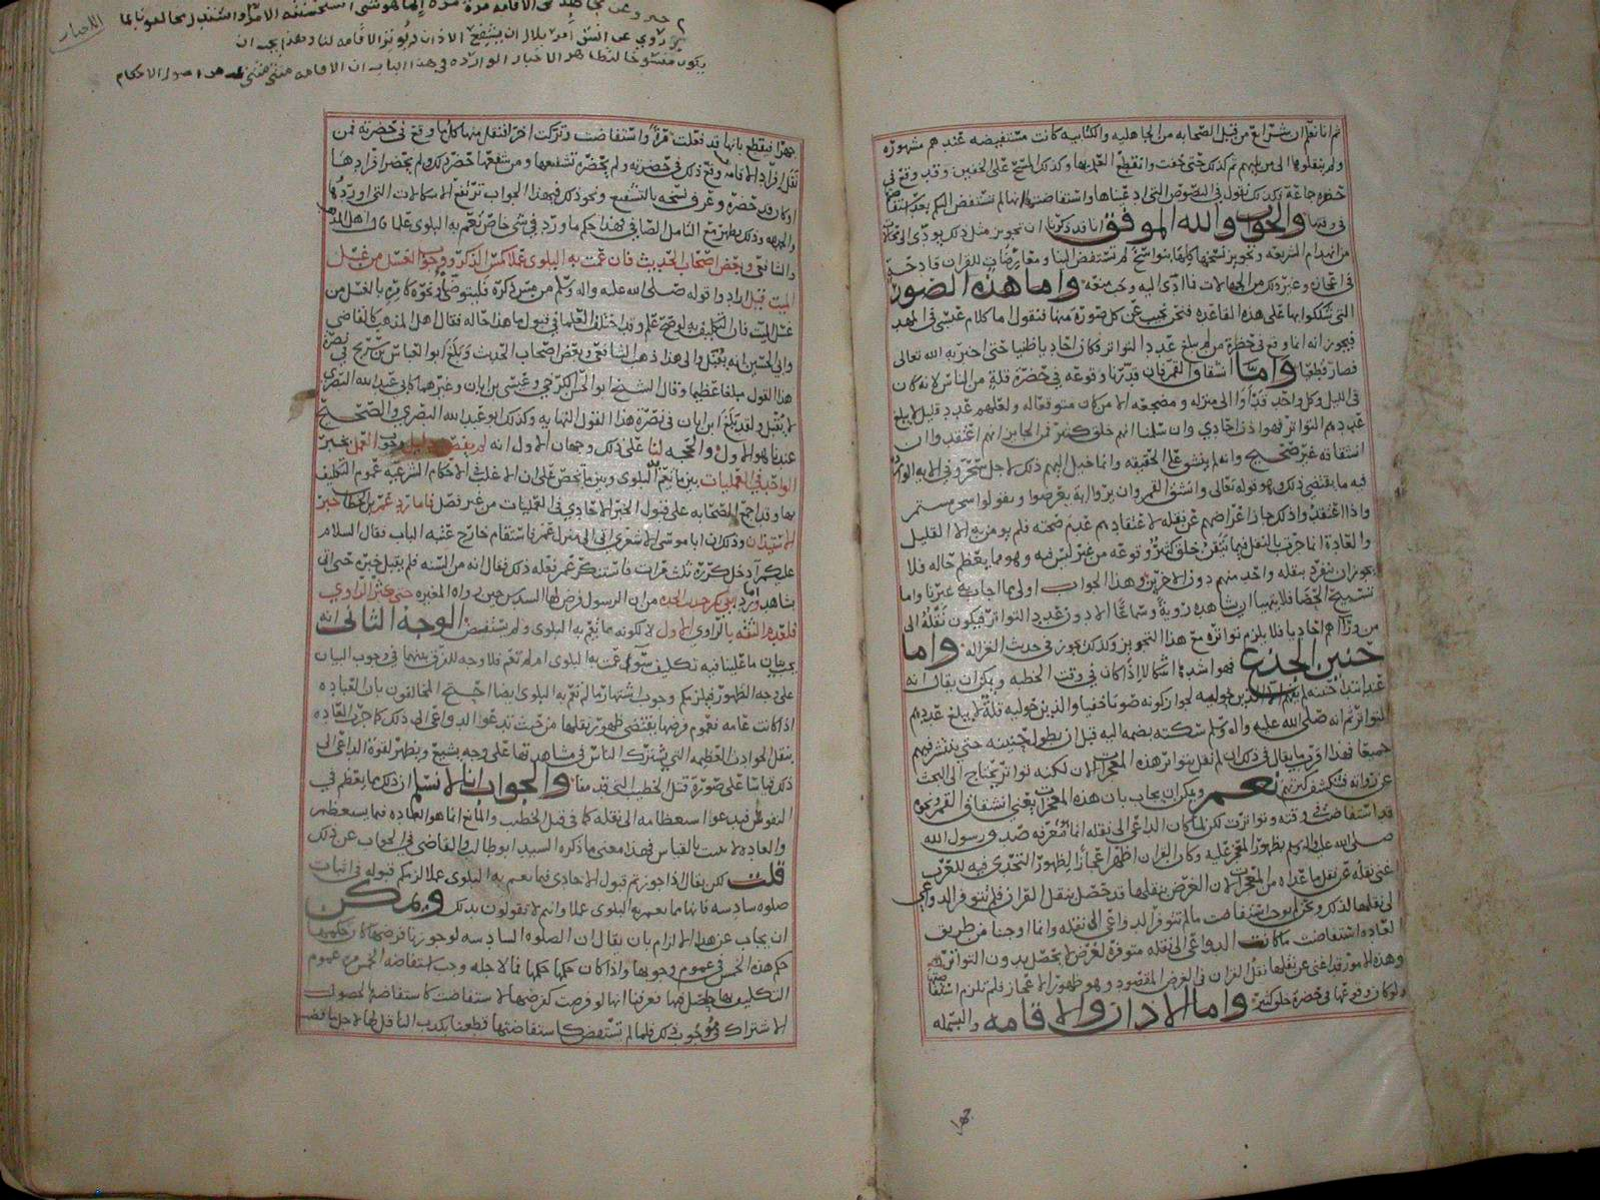 ثم انا نعلم ان شرائع من قبل الصحابه من الجاهليه والكتابيه كانت مستفيضه عندهم مشهوره
ولم ينقلوها الى من يليهم ثم كذلك حتى خفت وانقطع العلم بها وكذلك المسح على الخفين وقد وقع في
حضره جماعة وكذلك نقول في النصوص التي ادعيناها واستفاضتها
في وقتها والجواب والله الموفق انا قد ذكرنا ان تجويز مثل ذلك يودي الى
من انهدام الشريعه وتجويز نسخها كلها بنواسخ لم تستفض الينا ومعارضات للقران قادحة
في اعجازه وغير ذلك من الجهالات فما ادى اليه وجب منعه واما هذه الصور
التي شككوا بها على هذه القاعده فنحن نجيب عن كل صورة منها فنقول اما كلام عيسى في المهد
فيجوز انه انما وقع في حضرة من لم يبلغ عدد التواتر فكان احاديا ظنيا حتى اخبر به الله تعالى
فصار قطعيا واما انشقاق القمر فان قدرنا وقوعه في حضرة قلة من الناس لانه كان
في الليل وكل واحد قد اوا الى منزله ومضجعه الا من كان متوقعا له ولعلهم عدد قليل لا يبلغ
عددهم التواتر فهوا ذن احادي وان سلمنا انهم خلق كثير فمن الجايز انهم اعتقدوا ان
انشقاقه غير صحيح وانه لم ينشق على الحقيقه وانما خيل اليهم ذلك لاجل سحر وفي الايه الوارده
فيه ما يقتضي ذلك وهو قوله تعالى وانشق القمر وان يروا اية يعرضوا ويقولوا سحر مستمر
واذا اعتقدوا ذلك جاز اعراضهم عن نقله لاعتقادهم عدم صحته فلم يومن به الا القليل
والعادة انما جرت بالنقل فيما تيقن خلق كثير وقوعه من غير لبس فيه وهو مما يعظم حاله فلا
يجوز ان ينفرد بنقله واحد منهم دون الاخرين وهذا الجواب اولى مما اجاب به غيرنا واما
تسبيح الحصا فلا يتهيا ان يشاهده روية وسماعا الا دون عدد التواتر فيكون نقله الى
من وراهم احاديا فلا يلزم تواتره مع هذا التجويز وكذلك نجوز في حديث الغزاله واما
حنين الجذع فهوا شدها اشكالا اذا كان في وقت الخطبه ويمكن ان يقال انه
عند ابتدا حنينه لم يعلم الا الذين حواليه لجواز كونه صوتا خفيا والذين حواليه قلة لم يبلغ عددهم
التواتر ثم انه صلى الله عليه واله وسلم سكته بضمه اليه قبل ان يطول حنينه حتى ينتشر فيهم
جميعا فهذا اقرب ما يقال في ذلك ان لم نقل بتواتر هذه المعجزات الان لكنه تواتر يحتاج الى البحث
عن رواته فتنكشف كثرتهم نعم ويمكن ان يجاب بان هذه المعجزات يعني انشقاق القمر ونحوه
قد استفاضت في وقته وتواترت لكن لما كان الداعي الى نقله انما معرفه صدق رسول الله
صلى الله عليه واله وسلم بظهور المعجز عليه وكان القران اظهر اعجازا لظهور التحدي فيه للعرب
اغنى نقله عن نقل ما عداه من المعجزات لان الغرض بنقلها قد حصل بنقل القران فلم تتوفر الدواعي
الى نقلها لذلك ونحن لم نوجب استفاضت ما لم تتوفر الدواعي الى نقله وانما اوجبنا من طريق
العاده استفاضت ما كانت الدواعي الى نقله متوفرة لغرض لا يحصل بدون التواتر
وهذه الامور قد اغنى عن نقلها نقل القران في الغرض المقصود وهو ظهور الاعجاز فلم تلزم استفاضتها
ولو كان وقوعها في حضرة خلق كثير واما الاذان والاقامه والبسمله
جهرا
الاخبار
خبر وعن مجاهد في الاقامه مرة مرة انما هو شي
روي عن انس امر بلال ان يشفع الاذان ويوتر الاقامه لنا وهذا يجب ان
يكون منسوخا لتظاهر الاخبار الوارده في هذا الباب ان الاقامه مثنى مثنى اصول الاحكام
جهرا فيقطع بانها قد فعلت مرة واستفاضت وتركت اخرا فنقل منها كل ما وقع في حضرته فمن
نقل افراد الاقامه وقع ذلك في حضرته ولم يحضره تشفيعها ومن شفعها حضر ذلك ولم يحضر افرادها
او كان قد حضره وعرف نسخه بالتشفيع ونحو ذلك فبهذا الجواب ترتفع الاشكالات التي اوردها
وذلك يظهر مع التامل الصافي فهذا حكم ما ورد في شي خاص تعم به البلوى علما قال
والشافعي وبعض اصحاب الحديث فان عمت به البلوى عملا كمس الذكر ووجوب الغسل من غسل
الميت قبل ارادوا قوله صلى الله عليه واله وسلم من مس ذكره فليتوضا ونحوه كامره بالغسل من
غسل الميت فان التكليف به لو صح عم وقد اختلف العلما في قبول ما هذا حاله فقال اهل المذهب كالقاضي
وابي الحسين انه يقبل والى هذا ذهب الشافعي وبعض اصحاب الحديث وبلغ ابو العباس بن سريج في نصرة
هذا القول مبلغا عظيما وقال الشيخ ابو الحسن الكرخي وعيسى بن ابان وغيرهما كابي عبد الله البصري
لا يقبل ولقد بلغ ابن ابان في نصرة هذا القول النهايه وكذلك ابو عبد الله البصري والصحيح
عندنا هو الاول والحجه لنا على ذلك وجهان الاول انه لم يفصل دليل وجوب العمل بخبر
الواحد في العمليات بين ما تعم به البلوى وبين ما يخص على ان الاغلب في الاحكام الشرعيه عموم التكليف
بها وقد اجمع الصحابه على قبول الخبر الاحادي في العمليات من غير فصل فاما رد عمر بن الخطاب خبر
الاستيذان وذلك ان ابا موسى الاشعري اتى الى منزل عمر فاستقام خارج عتبه الباب فقال السلام
عليكم آدخل كرره ثلث مرات فاستنكر عمر فعله ذلك فقال انه من السنه فلم يقبل خبره حتى اتى
بشاهد ورد ابي بكر حديث الجده من ان الرسول فرض لها السدس حين رواه المغيره حتى كثر الراوي
فلعدم الثقه بالراوي الاول لا لكونه مما تعم به البلوى ولم يستفض الوجه الثاني انه
يجب بيان ما علينا فيه تكليف سوا عمت به البلوى ام لم تعم فلا وجه للفرق بينهما في وجوب البيان
على وجه الظهور فيلزمكم وجوب اشتهار ما لم تعم به البلوى ايضا احتج المخالفون بان العباده
اذا كانت عامه فعموم فرضها يقتضي ظهور نقلها من حيث تدعوا الدواعي الى ذلك كما جرت العاده
بنقل الحوادث العظيمه التي يشترك الناس في مشاهدتها على وجه يشيع ويظهر لقوة الداعي الى
ذلك قياسا على صورة قتل الخطيب التي قدمنا والجواب انا لا نسلم ان ذلك مما يعظم في
النفوس فيدعوا استعظامه الى نقله كما في قتل الخطيب والمانع انما هو العاده فيما يستعظم
والعاده لا تثبت بالقياس فهذا معنى ما ذكره السيد ابو طالب والقاضي في الجواب عن ذلك
قلت لكن يقال اذا جوزتم قبول الاحادي فيما تعم به البلوى عملا لزمكم قبوله في اثبات
صلوه سادسه فانها مما تعم به البلوى عملا وانتم لا تقولون بذلك ويمكن
ان يجاب عن هذا الالزام بان يقال ان الصلوه السادسه لو جوزنا فرضها كان حكمها
حكم هذه الخمس في عموم وجوبها واذا كان حكمها حكمها فما لاجله وجب استفاضه الخمس من عموم
التكليف بها حاصل فيها تعرفنا انها لو فرضت كفرضها لاستفاضت كاستفاضة لحصول
الاشتراك في موجب ذلك فلما لم تستفض كاستفاضتها قطعنا بكذب الناقل لها لاجل ما قضت